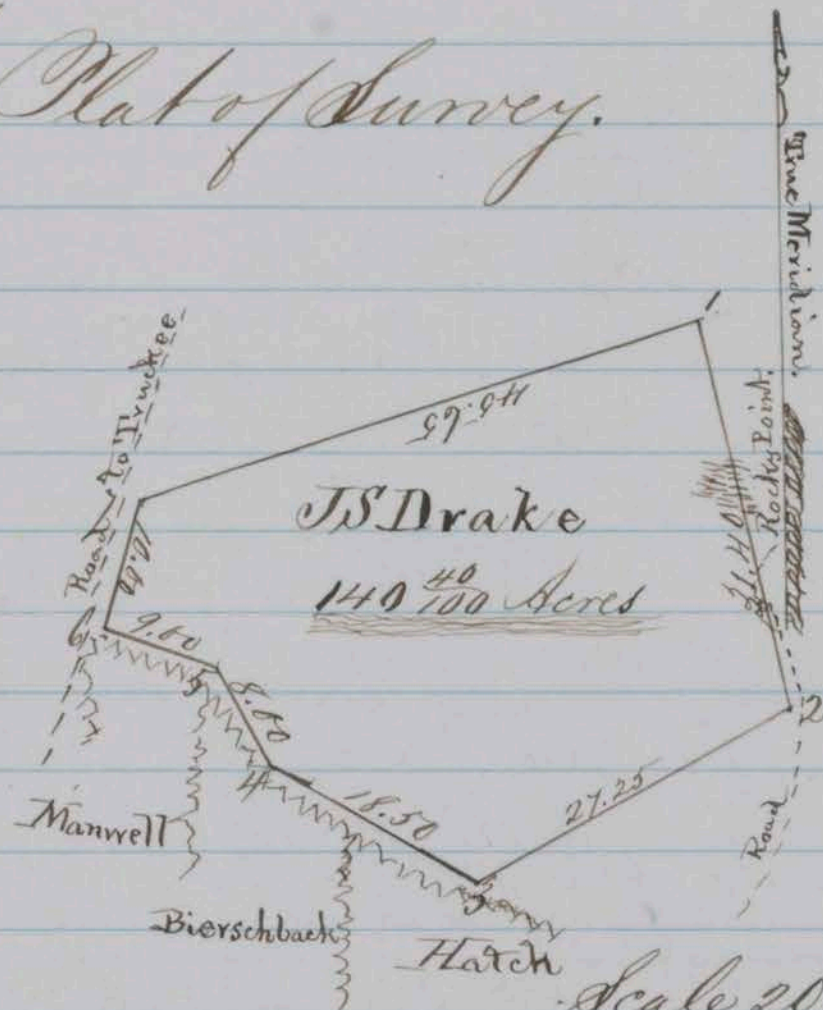 Plat of Survey.
True Meridian.
1
Road to Truckee
45.65
Rocky Point.
31.40
JS Drake
140 40/100 Acres
10.00
6
9.60
5
8.60
2
4
18.50
27.25
Manwell
Road
3
Bierschback
Hatch
Scale 20